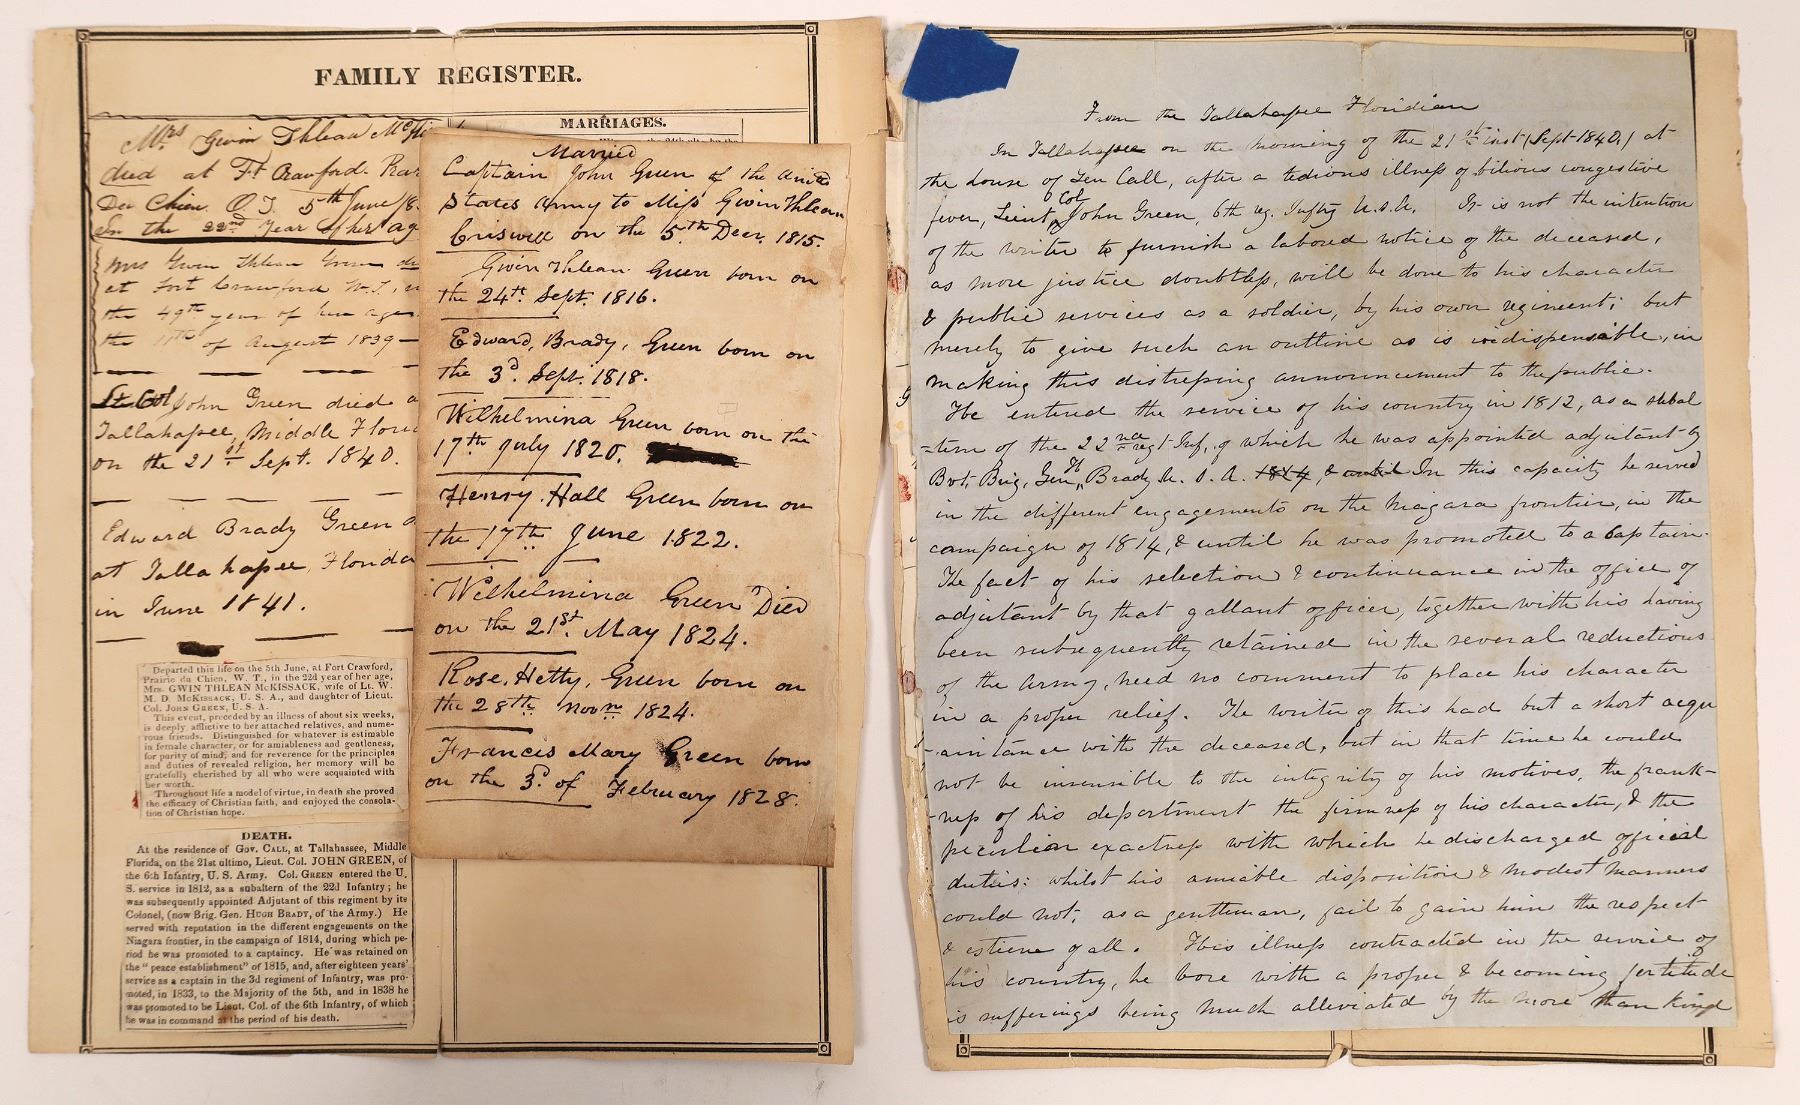 FAMILY REGISTER.
Mrs Gwin Thlean
died at Ft Crawford.
Du Chien. 5th June
In the 22nd Year of her age
Mrs Gwin Thlean Green
at Fort Crawford W.T.,
the 49th year of her age
the 11th of August 1839 —
Lt. Col John Green died
Tallahassee, Middle
on the 21st Sept. 1840.
Edward Brady Green
at Tallahassee, Florida
in June 1841.
Departed this life on the 5th June, at Fort Crawford,
Prairie du Chien, W. T., in the 22d year of her age,
Mrs. GWIN THLEAN McKISSACK, wife of Lt. W.
M. D. McKissack, U. S. A., and daughter of Lieut.
Col. John Green, U. S. A.
This event, preceded by an illness of about six weeks,
is deeply afflictive to her attached relatives, and nume-
rous friends. Distinguished for whatever is estimable
in female character, or for amiableness and gentleness,
for purity of mind, and for reverence for the principles
and duties of revealed religion, her memory will be
gratefully cherished by all who were acquainted with
her worth.
Throughout life a model of virtue, in death she proved
the efficacy of Christian faith, and enjoyed the consola-
tion of Christian hope.
DEATH.
At the residence of Gov. Call, at Tallahassee, Middle
Florida, on the 21st ultimo, Lieut. Col. JOHN GREEN, of
the 6th Infantry, U. S. Army. Col. Green entered the U.
S. service in 1812, as a subaltern of the 22d Infantry; he
was subsequently appointed Adjutant of this regiment by its
Colonel, (now Brig. Gen. Hugh Brady, of the Army.) He
served with reputation in the different engagements on the
Niagara frontier, in the campaign of 1814, during which pe-
riod he was promoted to a captaincy. He was retained on
the "peace establishment" of 1815, and, after eighteen years'
service as a captain in the 3d regiment of Infantry, was pro-
moted, in 1833, to the Majority of the 5th, and in 1838 he
was promoted to be Lieut. Col. of the 6th Infantry, of which
he was in command at the period of his death.
MARRIAGES.
Married
Captain John Green of the United
States Army to Miss Gwin Thlean
Criswell on the 5th Decr. 1815.
Gwin Thlean Green born on
the 24th Sept. 1816.
Edward, Brady, Green born on
the 3d. Sept. 1818.
Wilhelmina Green born on the
17th July 1820.
Henry. Hall Green born on
the 17th June 1822.
Wilhelmina Green Died
on the 21st. May 1824.
Rose, Hetty, Green born on
the 28th Novn 1824.
Frances Mary Green born
on the 3d. of February 1828.
From the Tallahassee Floridian
In Tallahassee on the morning of the 21st inst (Sept 1840,) at
the house of Gen Call, after a tedious illness of bilious congestive
fever, Lieut Col John Green, 6th reg. Inftry U.S.A. It is not the intention
of the writer to furnish a labored notice of the deceased,
as more justice doubtless, will be done to his character
& public services as a soldier, by his own regiment; but
merely to give such an outline as is indispensable, in
making this distressing announcement to the public.
He entered the service of his country in 1812, as a subal
-tern of the 22nd regt Inf, of which he was appointed adjutant by
Bvt, Brig, Gen H Brady U. S. A. 1814, & until In this capacity he served
in the different engagements on the Niagara frontier, in the
campaign of 1814, & until he was promoted to a Captain.
The fact of his selection & continuance in the office of
adjutant by that gallant officer, together with his having
been subsequently retained in the several reductions
of the Army, need no comment to place his character
in a proper relief. The writer of this had but a short acqu
-aintance with the deceased, but in that time he could
not be insensible to the integrity of his motives, the frank-
-ness of his deportment the firmness of his character, & the
peculiar exactness with which he discharged official
duties: whilst his amiable disposition & modest manners
could not, as a gentleman, fail to gain him the respect
& esteem of all. This illness contracted in the service of
his country, he bore with a proper & becoming fortitude
is sufferings being much alleviated by the more than kind